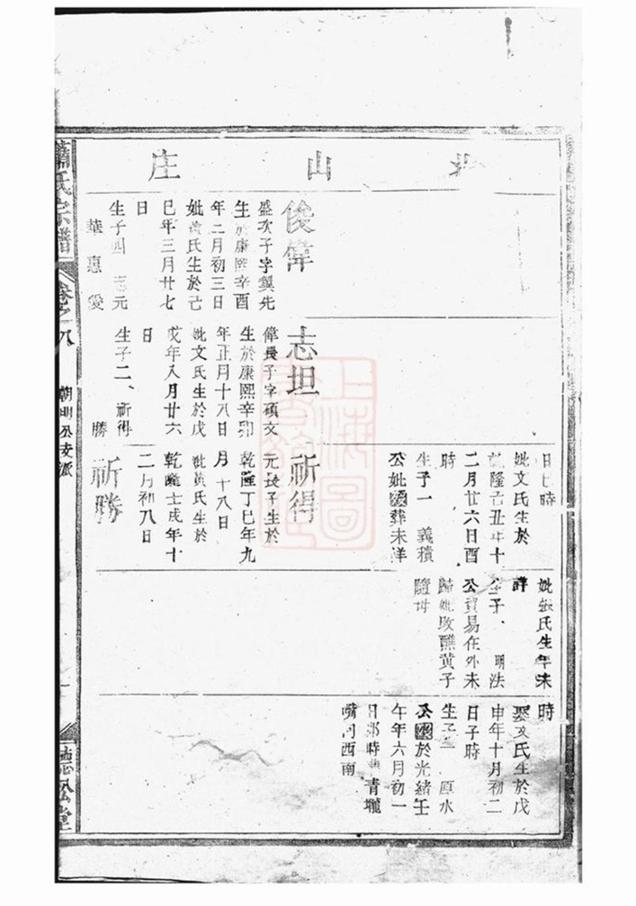 山庄
日七時
妣文氏生於
乾隆己丑年十
二月廿六日酉
時
生子一 義積
公妣葬未詳
祈得
元長子生於
乾隆丁巳年九
月十八日
妣黃氏生於
乾隆壬戌年十
二月初八日
祈勝
妣張氏生年未
詳
生子 明法
公貿易在外未
歸妣改醮黃子
隨母
時
娶文氏生於戊
申年十月初二
日子時
生子 原水
公於光緒壬
午年六月初一
日卯時 青壠
嘴 西南
俊偉
盛次子字製先
生於康熙辛酉
年二月初三日
妣黃氏生於己
巳年三月廿七
日
生子四 志元
華 惠 愛
志坦
偉長子字碩文
生於康熙辛卯
年正月十八日
妣文氏生於戊
戌年八月廿六
日
生子二、祈得
勝
蕭氏宗譜
卷之八
朝明公支派
聽松堂
上海圖